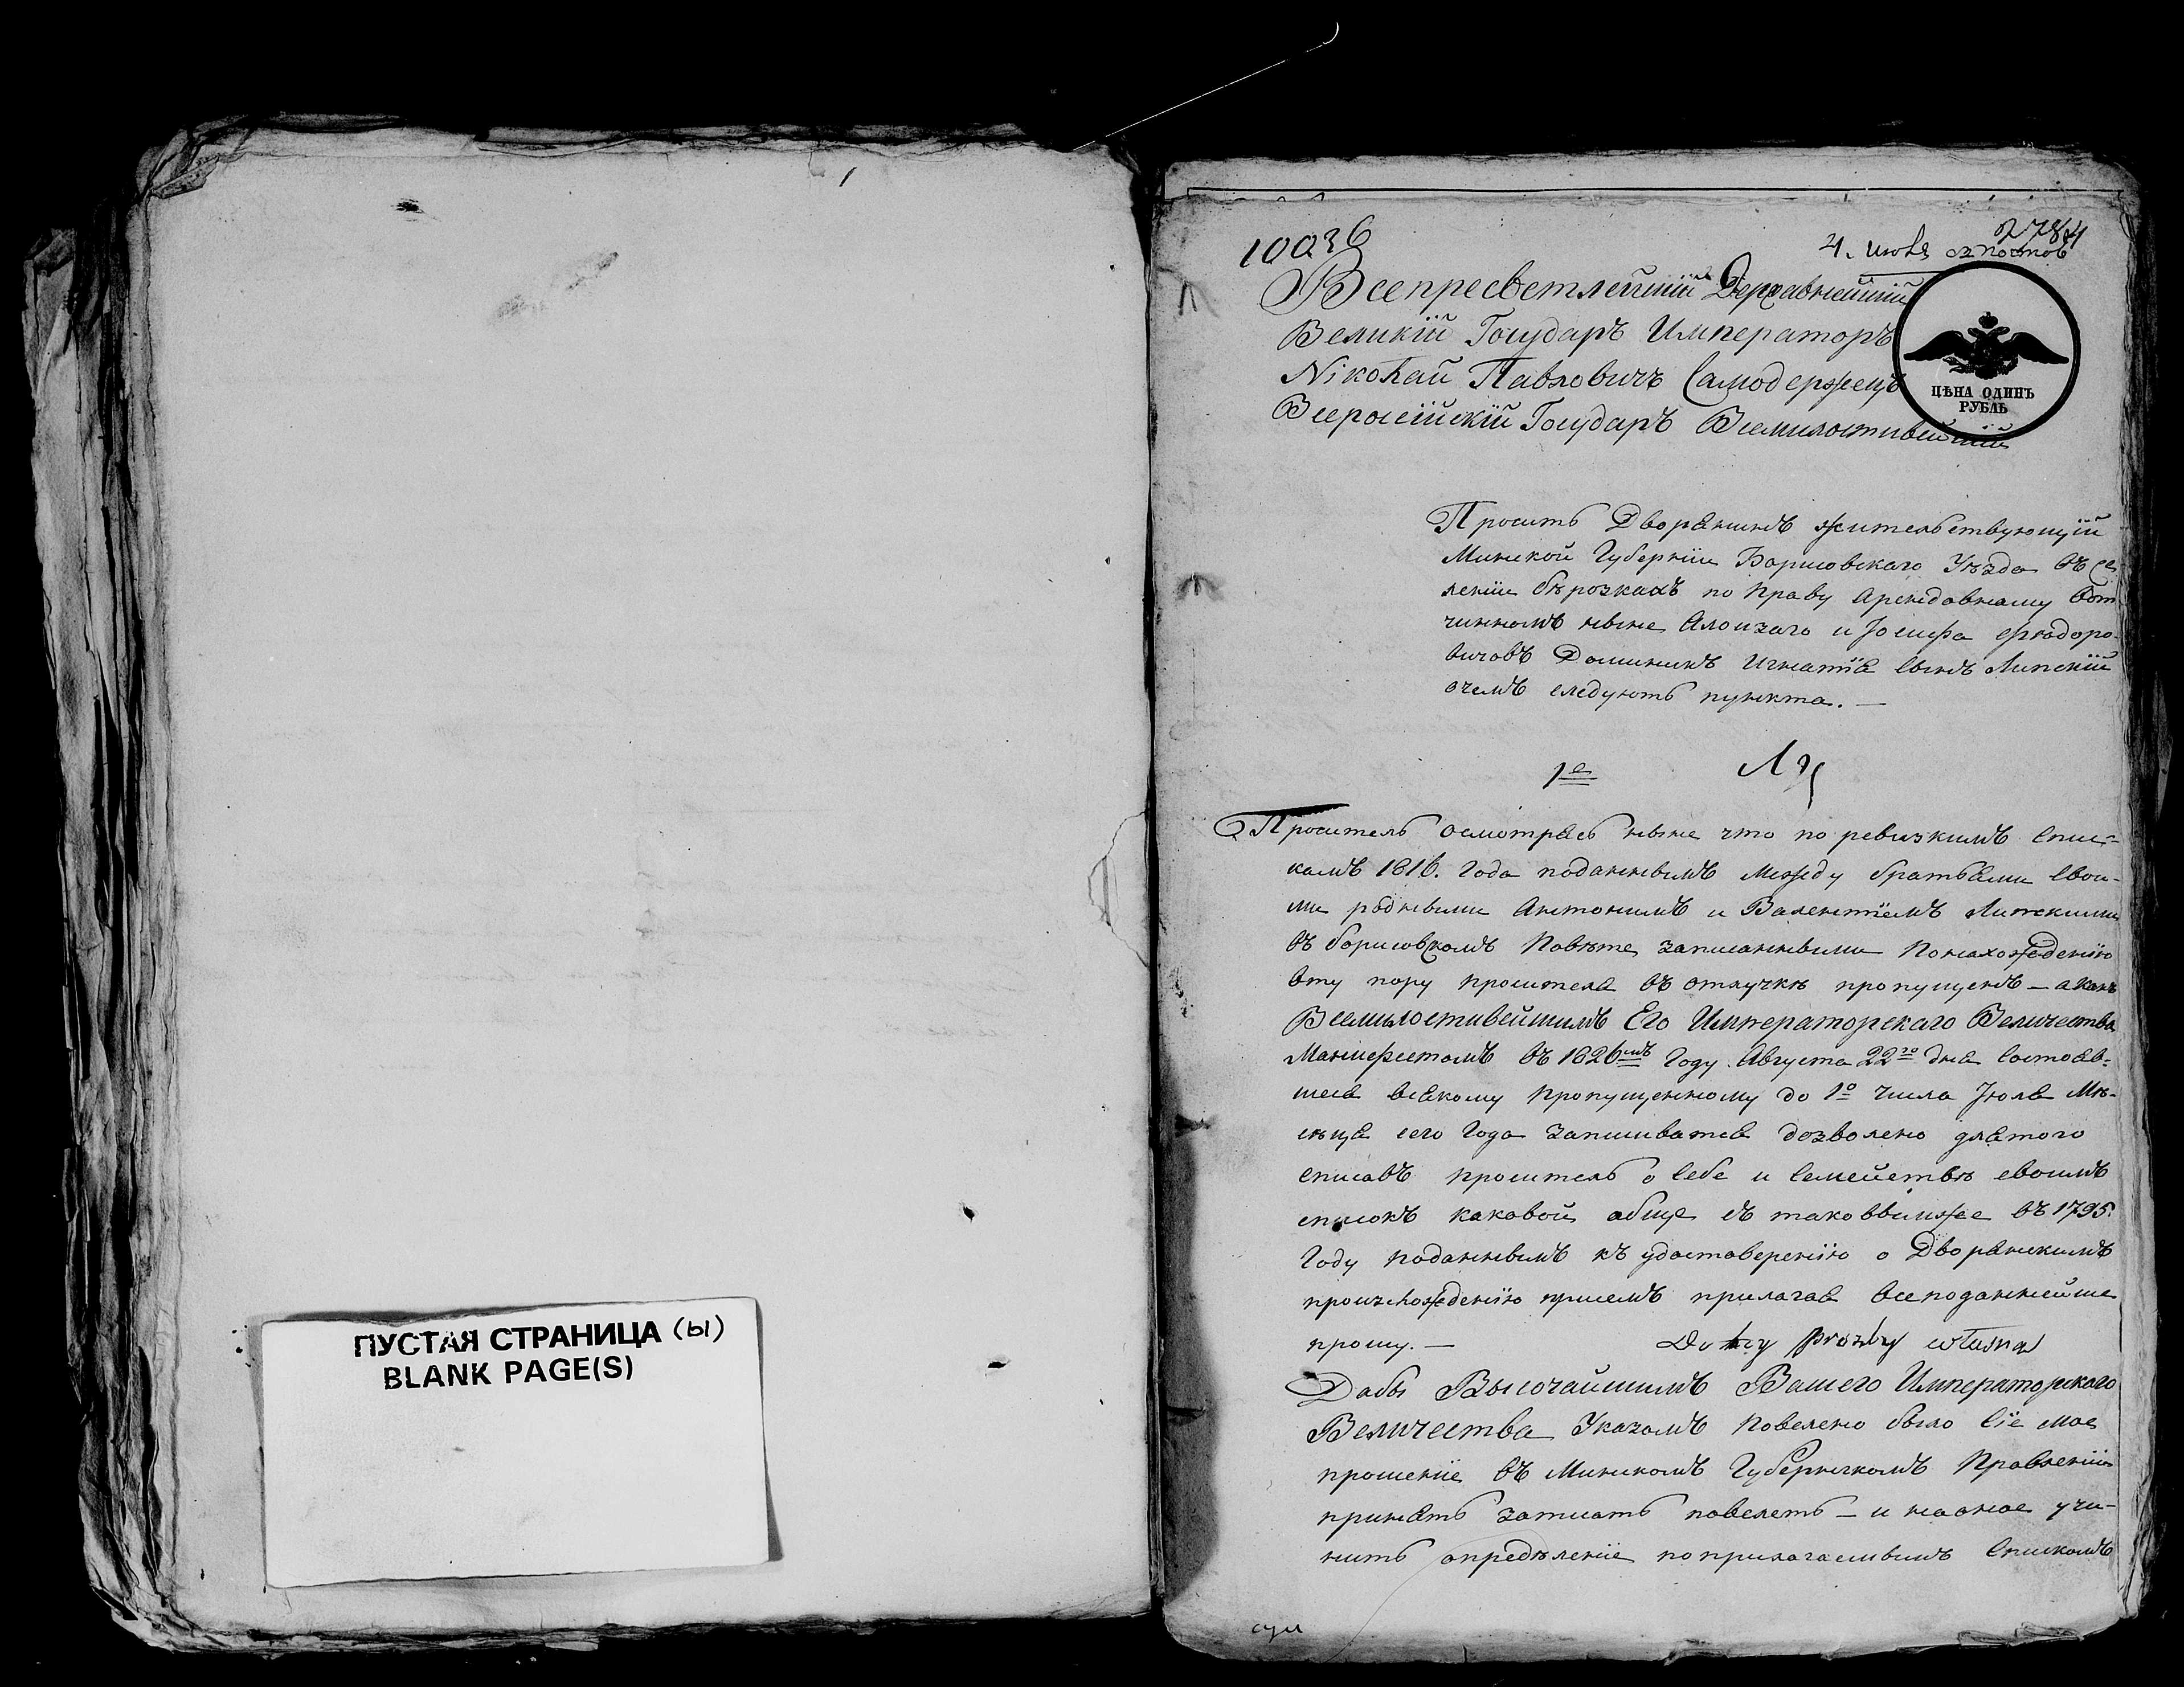 1
ПУСТАЯ СТРАНИЦА (ы)
BLANK PAGE(S)
10036
2784
4. июля
Всепресветлейшій Державнейшій
Великій Государъ Императоръ
Nіколай Павловичъ Самодержецъ
Всероссійскій Государъ Всемилостивейшій
ЦѢНА ОДИНЪ
РУБЛЬ
Проситъ Дворянинъ жительствующій
Минской Губерніи Борисовскаго Уѣзда въ се
леніи бѣрозкахъ по праву Арендовному вот
чинномъ ныне Алоизаго и Іосифа
Доминикъ Игнатія сынъ Липскій
очемъ следуютъ пункта. —
1е
Проситель осмотрясь ныне что по ревизкимъ спис-
камъ 1816. года поданнымъ между братьями свои-
ми родными Антонимъ и Валентіемъ Липскими
въ борисовскомъ Повѣте записанными Понахожденію
вту пору просителя въ отлучкѣ пропущенъ — а какъ
Всемилостивейшимъ Его Императорскаго Величества
Манифестомъ въ 1826мъ Году Августа 22го дня состояв-
шеся всякому пропущенному до 1о числа Іюля Мѣ-
сяца сего Года записыватся дозволено длятого
списавъ проситель о себе и семействѣ своимъ
списокъ каковой обще съ таковымже въ 1795.
Году поданнымъ къ удостоверенію о Дворянскимъ
произхожденію присемъ прилагая всеподаннейше
прошу. — Do tey prozby własną
Дабы Высочайшимъ Вашего Императорскаго
Величества Указомъ повелено было сіе мое
прошеніе въ Минскомъ Губернскомъ Правленіи
принять записать повелеть — и наоное учи-
нить определеніе поприлагаемымъ спискомъ